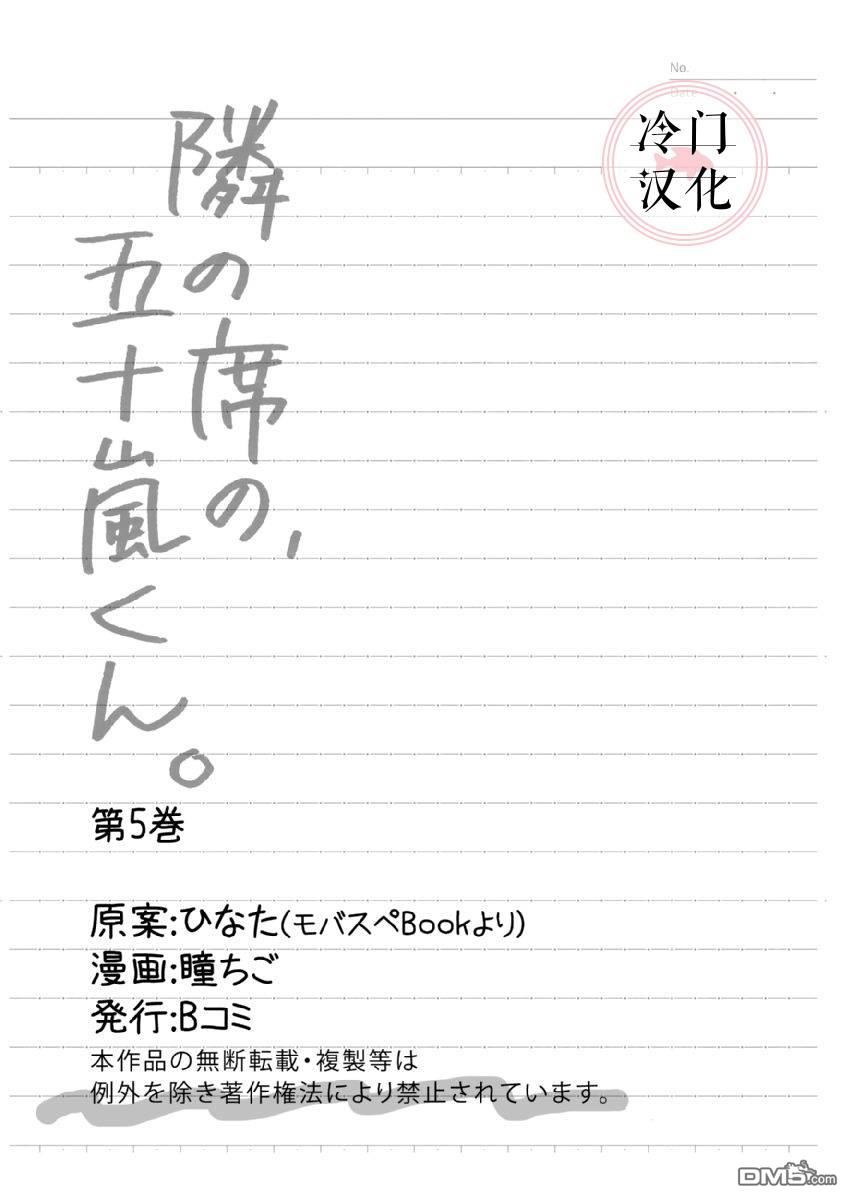 No.
Date
冷门
汉化
隣の席の、
五十嵐くん。
第5巻
原案:ひなた(モバスペBookより)
漫画:瞳ちご
発行:Bコミ
本作品の無断転載・複製等は
例外を除き著作権法により禁止されています。
DM5.com